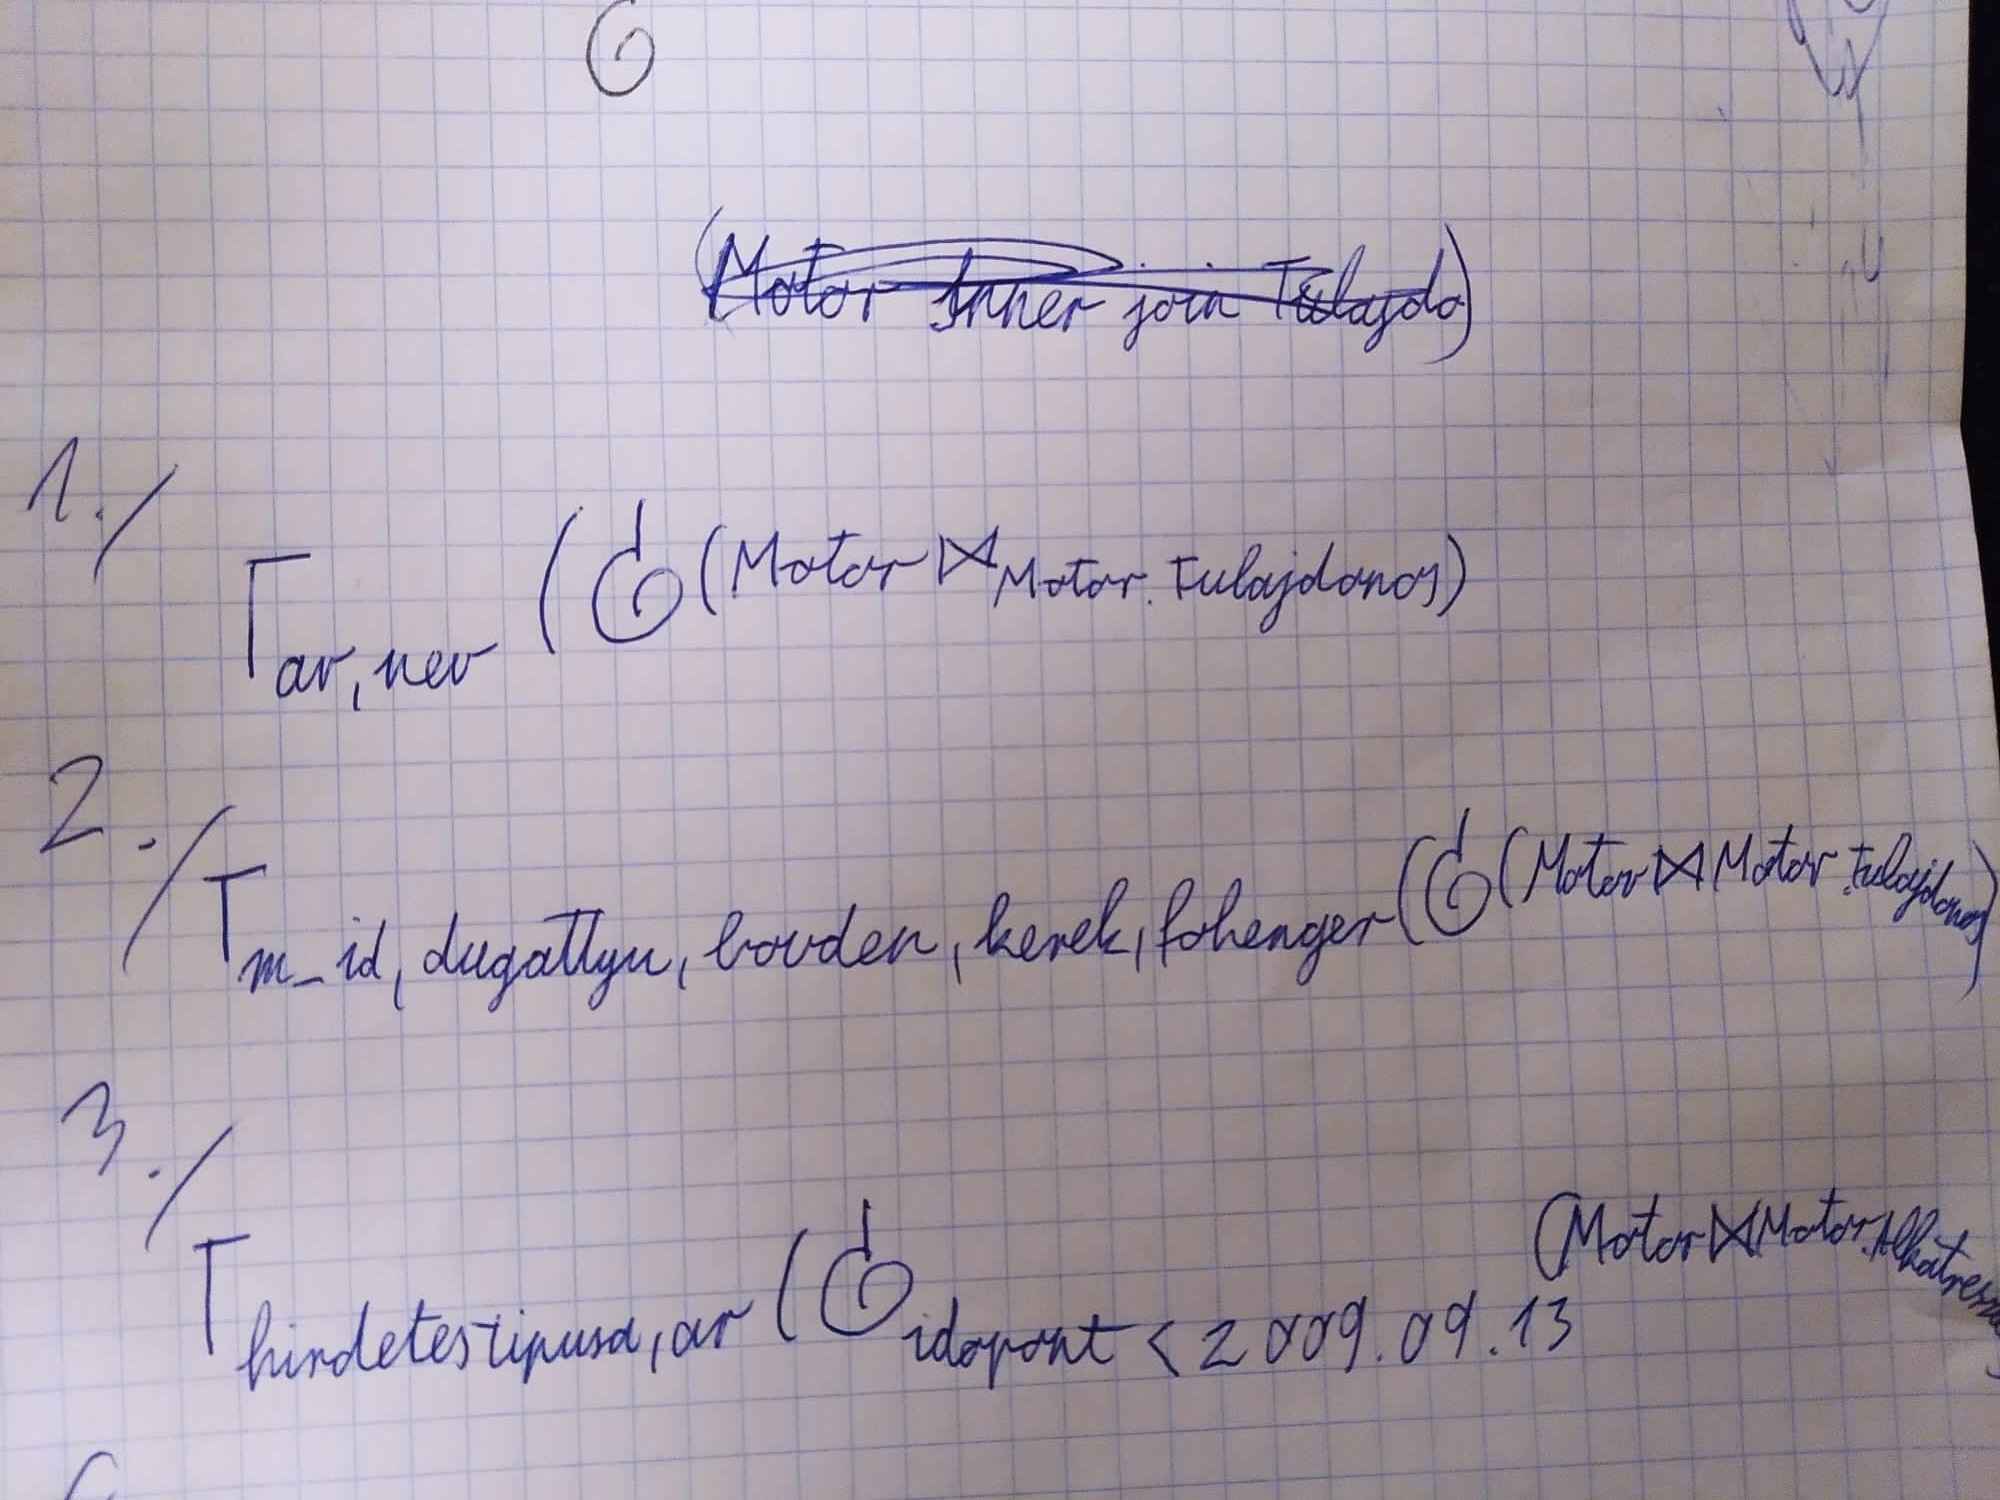 6
(Motor Inner join Tulajdo)
1./
Γ ar, nev (σ (Motor ⋈ Motor.Tulajdonos)
2./
Γ m_id, dugattyu, bovden, kerek, fohenger (σ (Motor ⋈ Motor.tulajdonos)
3./
Γ hirdetestipusa, ar (σ idopont < 2009.09.13 (Motor ⋈ Motor.Alkatresz